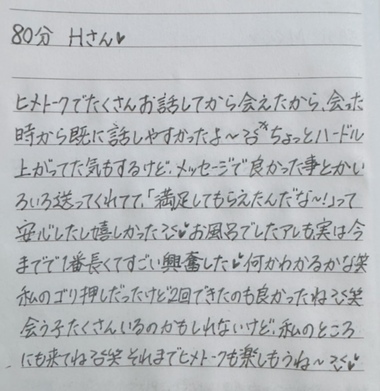 80分 Hさん♥
ヒメトークでたくさんお話してから会えたから、会った
時から既に話しやすかったよ〜 ちょっとハードル
上がってた気もするけど、メッセージで良かった事とかい
ろいろ送ってくれてて、「満足してもらえたんだな〜!」って
安心したし嬉しかった お風呂でしたアレも実は今
までで1番長くてすごい興奮した♥何かわかるかな笑
私のゴリ押しだったけど2回できたのも良かったね 笑
会う子たくさんいるのかもしれないけど、私のところ
にも来てね 笑 それまでヒメトークも楽しもうね〜